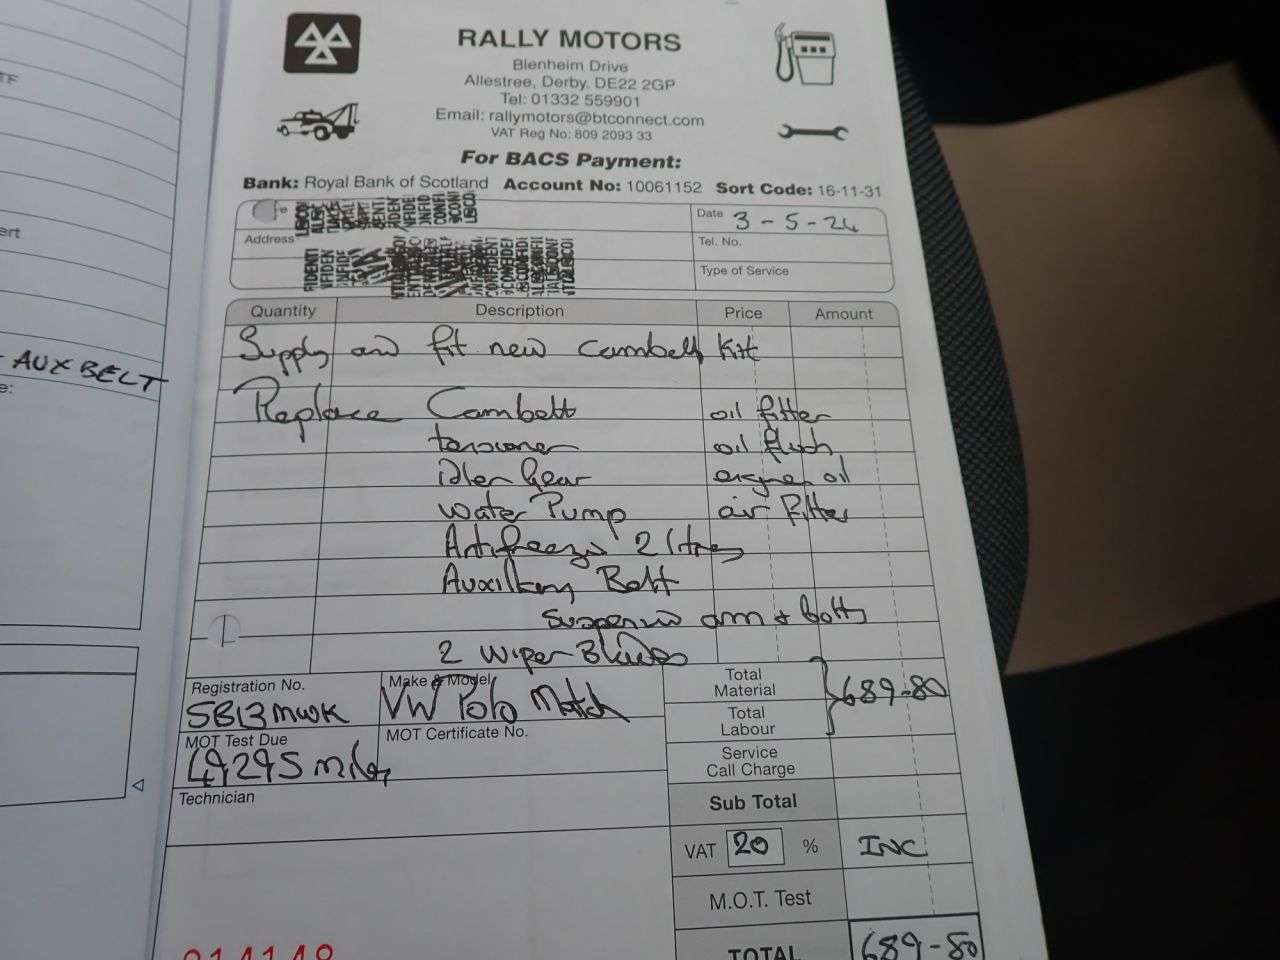 RALLY MOTORS
Blenheim Drive
Allestree, Derby. DE22 2GP
Tel: 01332 559901
Email: rallymotors@btconnect.com
VAT Reg No: 809 2093 33
For BACS Payment:
Bank: Royal Bank of Scotland Account No: 10061152 Sort Code: 16-11-31
Date 3-5-24
Address
Tel. No.
Type of Service
Quantity Description Price Amount
Supply and fit new Cambelt Kit
- AUX BELT
Replace Cambelt oil filter
tensioner oil flush
idler Gear engine oil
water Pump air filter
Antifreeze 2 litres
Auxiliary Belt
Suspension arm + bolts
2 wiper Blades
Registration No. Make & Model Total Material
SB13MWK VW Polo Match 689-80
Total Labour
MOT Test Due MOT Certificate No.
49295 miles
Service Call Charge
Technician
Sub Total
VAT 20 % INC
M.O.T. Test
TOTAL 689-80